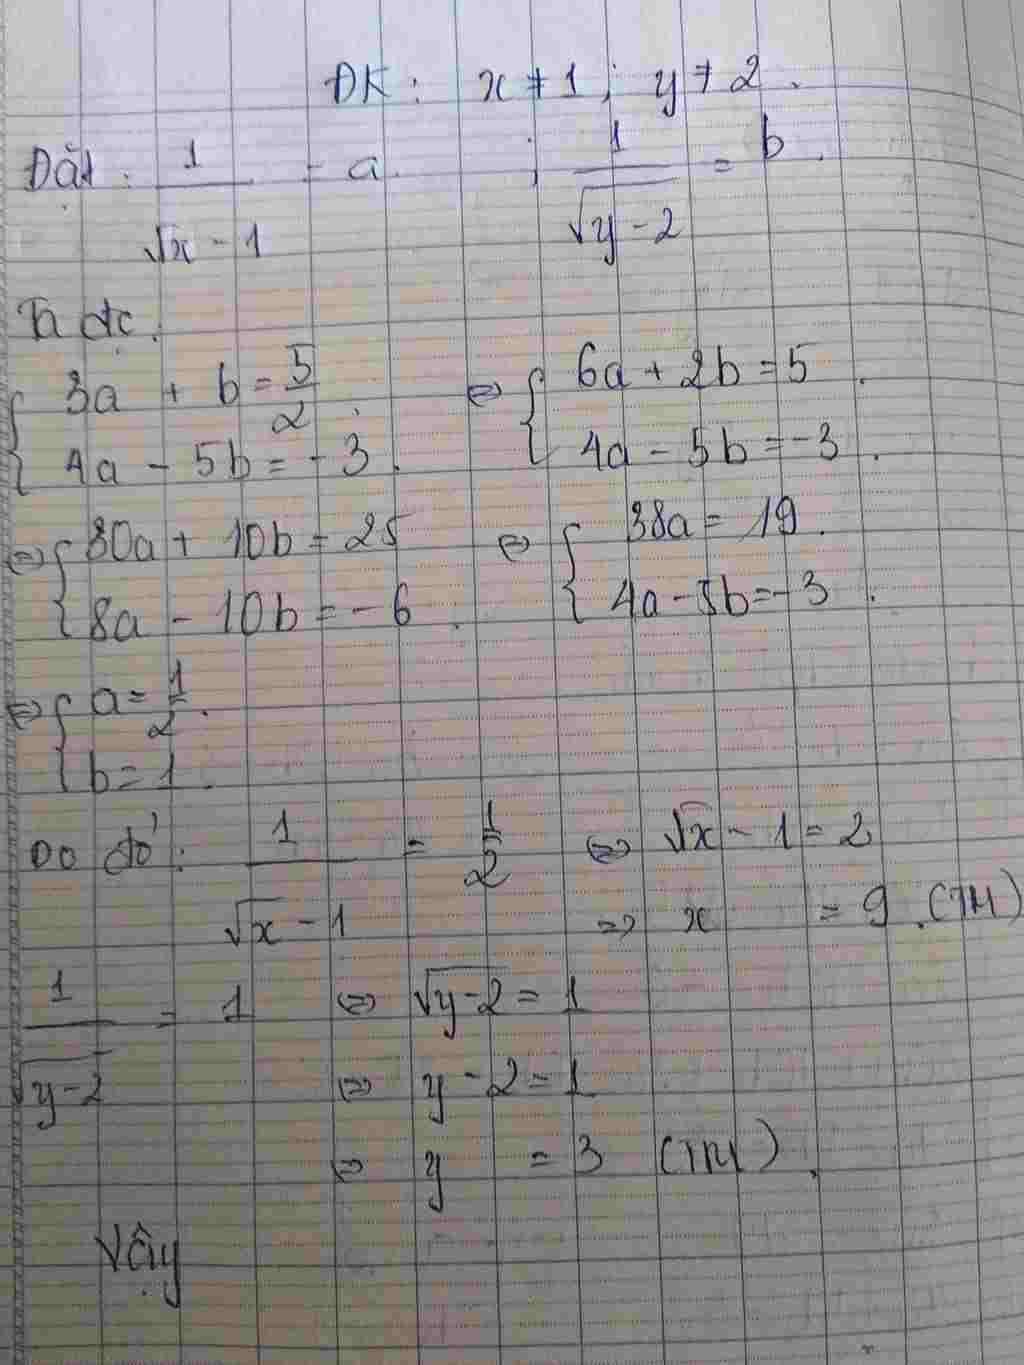 ĐK : x ≠ 1 ; y ≠ 2 .
Đặt : 1/(√x - 1) = a . ; 1/√(y-2) = b .
Ta đc .
{ 3a + b = 5/2 . ⇔ { 6a + 2b = 5 .
4a - 5b = -3 . 4a - 5b = -3 .
⇔ { 30a + 10b = 25 ⇔ { 38a = 19 .
8a - 10b = -6 . 4a - 5b = -3 .
⇔ { a = 1/2 .
b = 1 .
Do đó : 1/(√x - 1) = 1/2 ⇔ √x - 1 = 2
⇒ x = 9 . (TM)
1/√(y-2) = 1 ⇔ √(y-2) = 1
⇔ y - 2 = 1
⇔ y = 3 (TM) .
Vậy